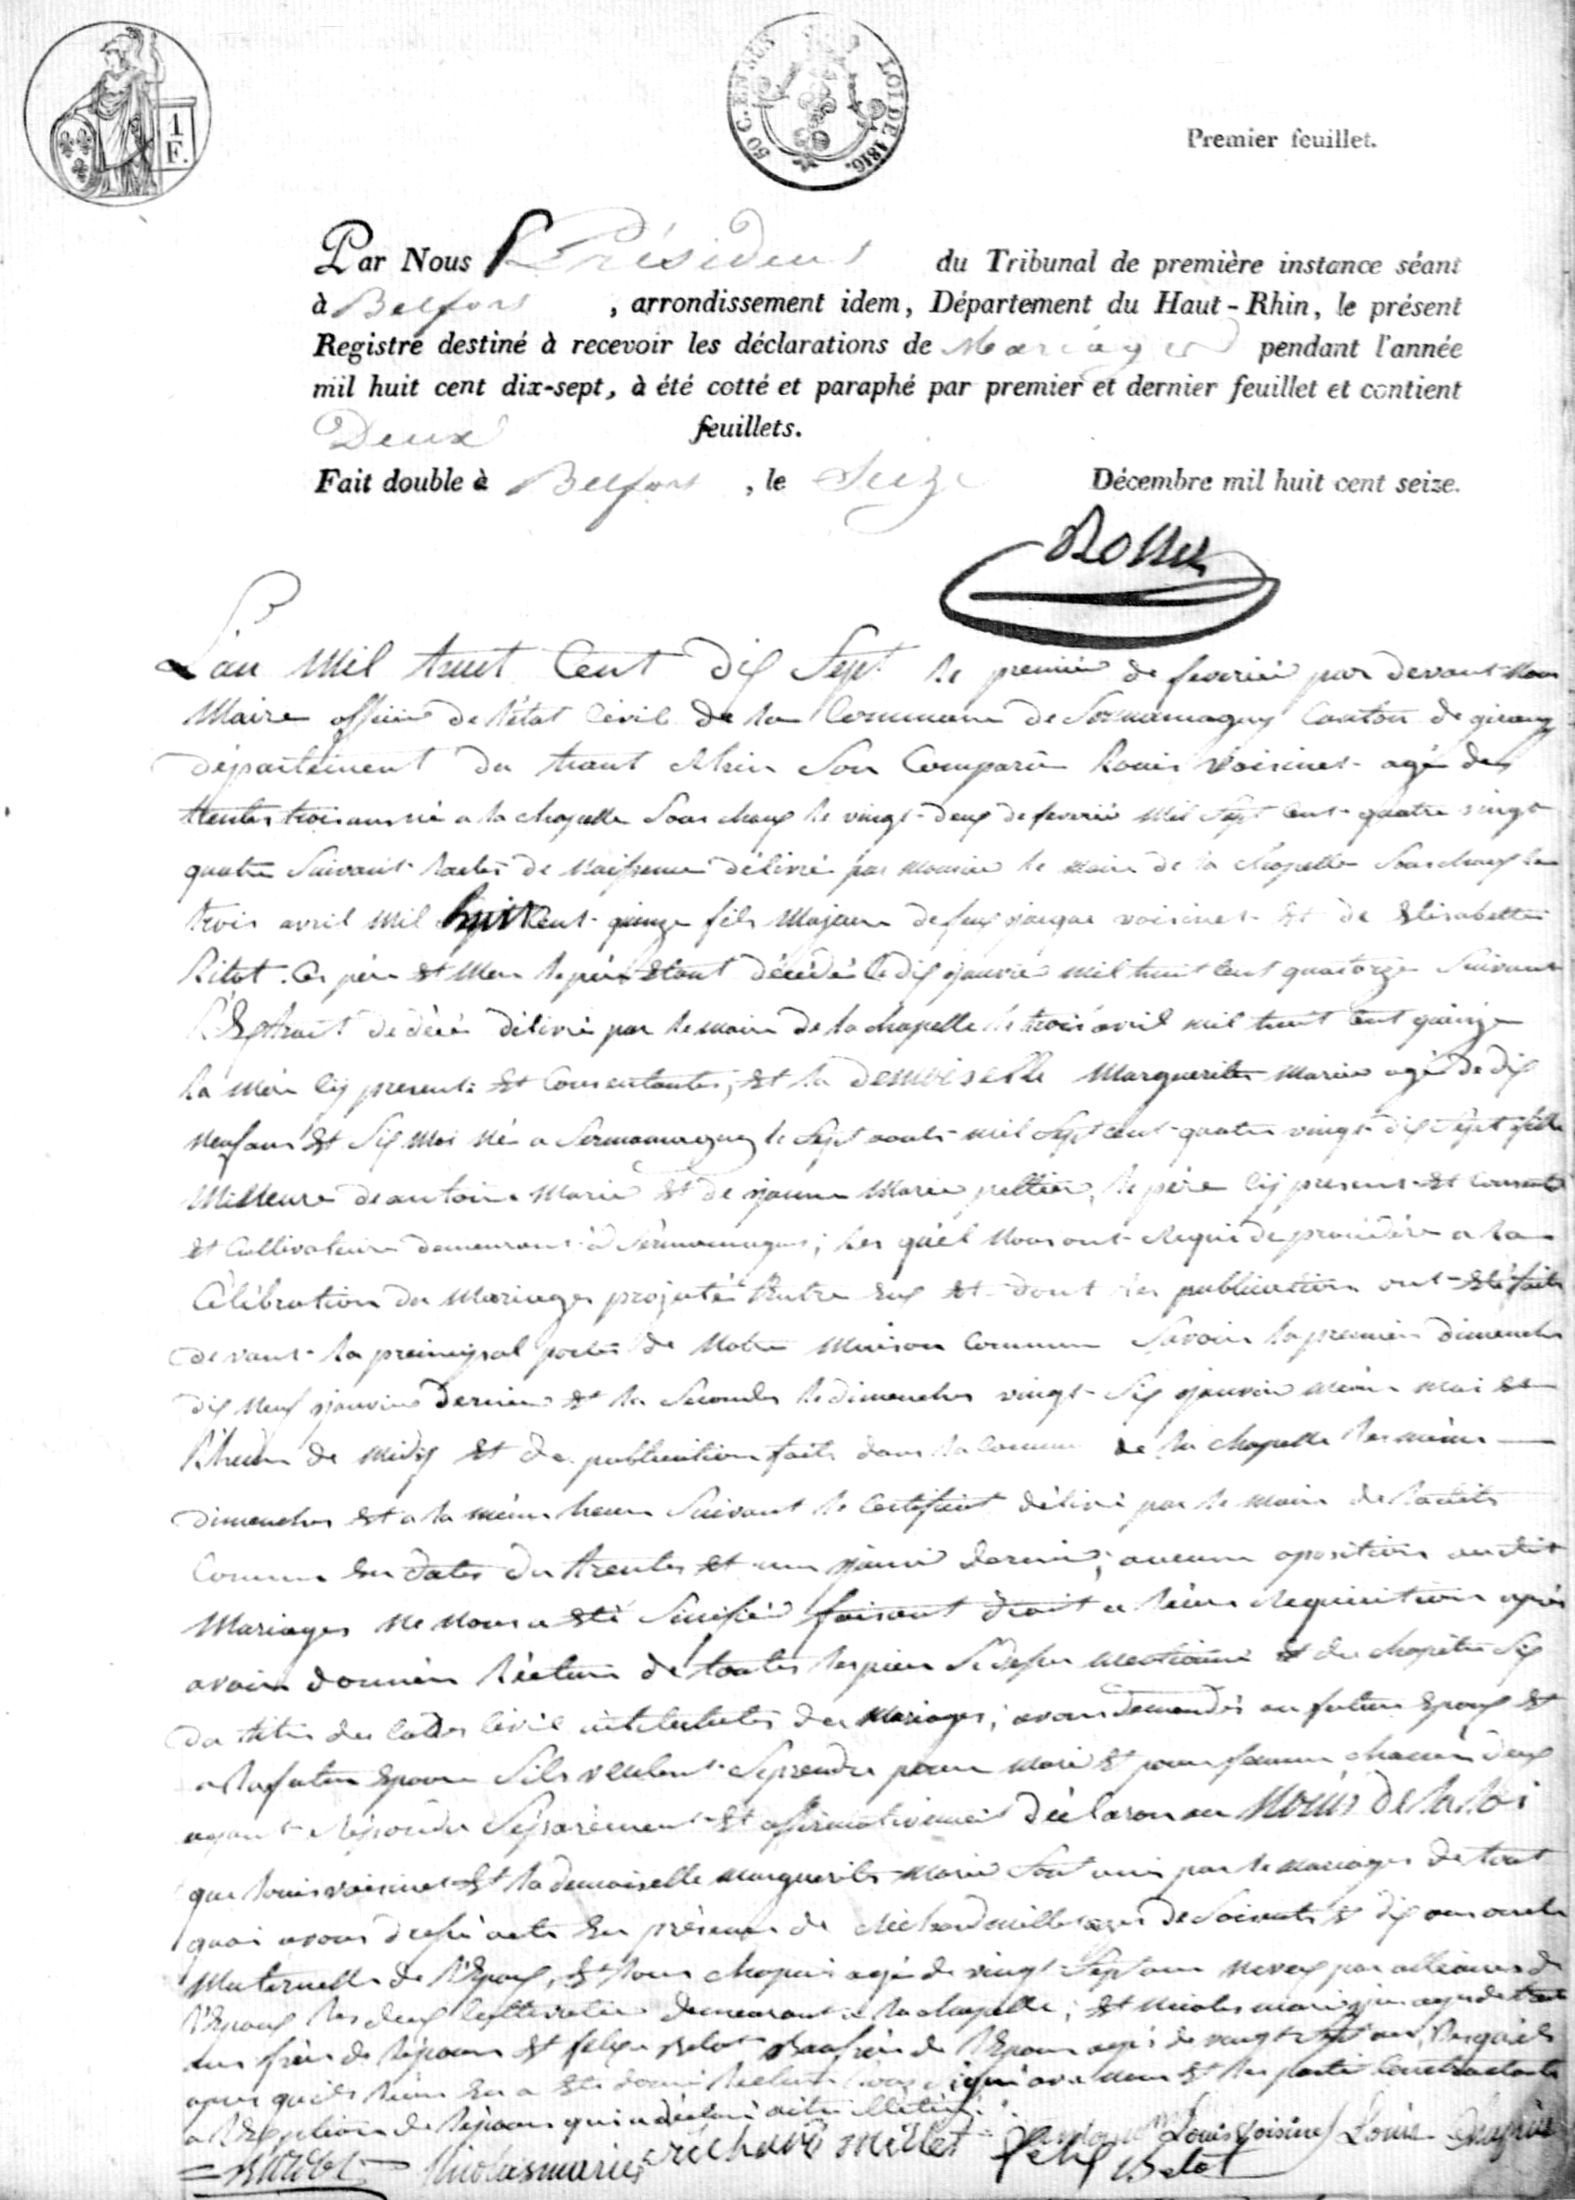 1 F.
50 C. EN SUS
LOI DE 1816.
Premier feuillet.
Par Nous Président du Tribunal de première instance séant
à Belfort , arrondissement idem, Département du Haut-Rhin, le présent
Registre destiné à recevoir les déclarations de Mariages pendant l'année
mil huit cent dix-sept, à été cotté et paraphé par premier et dernier feuillet et contient
Deux feuillets.
Fait double à Belfort , le Seize Décembre mil huit cent seize.
L'an Mil huit Cent Dix Sept le premié de feverié par devant Nous
Maire officié de l'état Civil de la Commune de Sermamagny Canton de giromy
département du haut Rhin Son Comparû Louis Voisinet agé des
trentes trois ans né a la chapelle Sous chaux le vingt-deux de feverié Mil Sept Cent quatre vingt
quatre Suivant l'actes de Naissence délivré par monsieur le maire de la Chapelle Souschaux le
trois avril Mil huit Cent quinze fils Majeure de feux jacque voisinet Et de Elisabette
Litot. Ces père Et Mere le père Etant décédé le dix janvié mil huit Cent quatorze Suivant
l'Extrait de décé délivré par le maire de la chapelle le trois avril mil huit Cent quinze
la Mère Cy presente Et Consentantes, Et la demoiselle Marguerite Marie agé de dix
neuf ans Et Six Moi Né a Sermamagny le Sept aouts mil Sept Cent quatre vingt dix Sept fille
Milleure de antoine Marie Et de jeanne Marie peltier, le père Cy present Et Consent
Et Cultivateure demeurant à Sermamagny; les quél Nous ont Requi de procédére a la
Célébration du Mariages projeté Entre Eux Et dont les publication ont Eté faite
devant la preincipal portes de Notre Maison Commune Savoire la premiere dimenche
dix Neuf janvié dernié Et la Secondes le dimenches vingt-Six janvié même moi Et
l'heure de midy Et de publication faite dans la Commune de la chapelle les mème
dimenches Et a la mème heure Suivant le Certificat délivré par le maire de ladite
Commune En dates du trentes Et un janvié dernié; aucune oposition audit
Mariages Ne Nous a Eté Sinifié faisant droit a leure Requisition aprés
avoir donnér lécture de toutes les pieces Cidesus mentionné Et du chapitre Six
du titre du Codes Civil intitulés du Mariages; avons demandés au futur Epoux Et
a la future Epouse Sils veulent Seprendre pour Mari Et pour femme chacun deux
ayant Répondu Séparément Et affirmativement déclaron au Nom De la loi
que Louis voisinet Et la demoiselle Marguerite Marie Sont uni par le mariages de tout
quoi avons dressé acte En présence de Richard millet agé de Soixante Et dix ans oncle
Maternelle de l'Epoux, Et Louis chapuis agé de vingt Sept ans neveux par alliances de
l'Epoux les deux Cultivateur demeurant a la chapelle; Et Nicolas marie
frère de l'épouse Et felix Belot Beaufrére de l'Epouse agé de vingt Sept ans lesquels
apres quils leure En a Eté donné lecture Signé avec Nous Et les partie Contractante
a l'Exeption de l'épouse qui a déclaré
Nicolas marie Richard millet Louis Voisinet Louis Chapuis
felix Belot